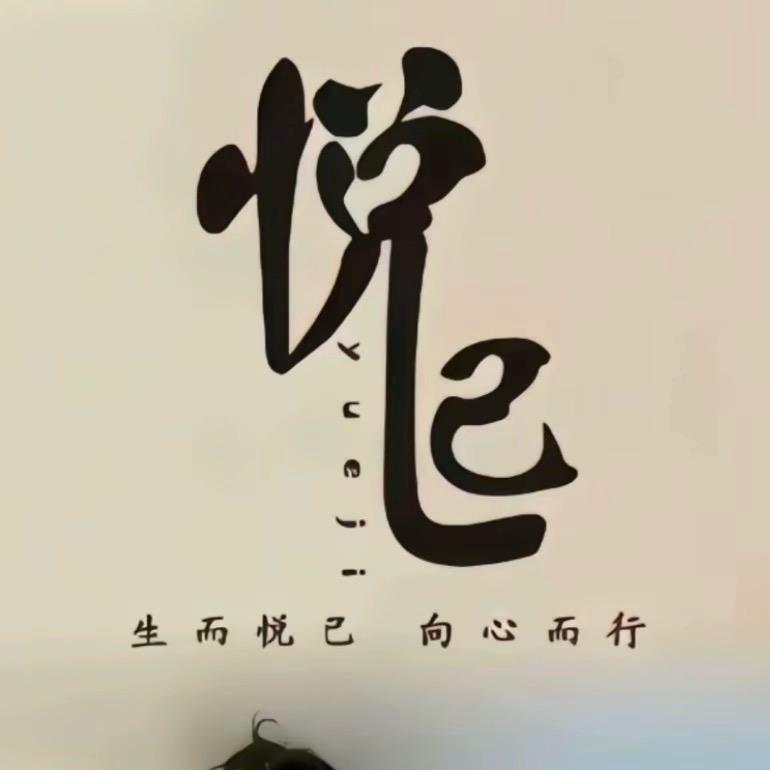 悦己
yueji
生而悦己 向心而行